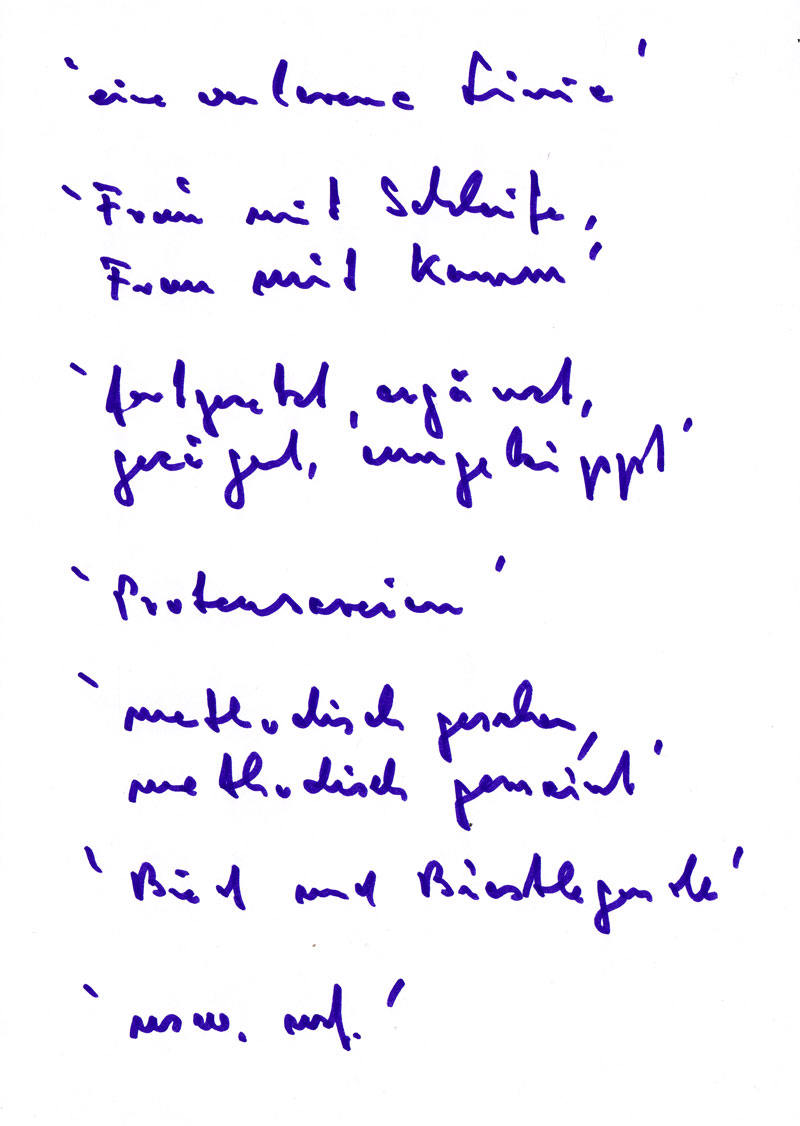 'eine verlorene Linie'
'Frau mit Schleife,
Frau mit Kamm'
'fortgesetzt, ergänzt,
gezeigt, umgekippt'
methodisch gesehen,
methodisch gemeint'
und
'usw. usf.'